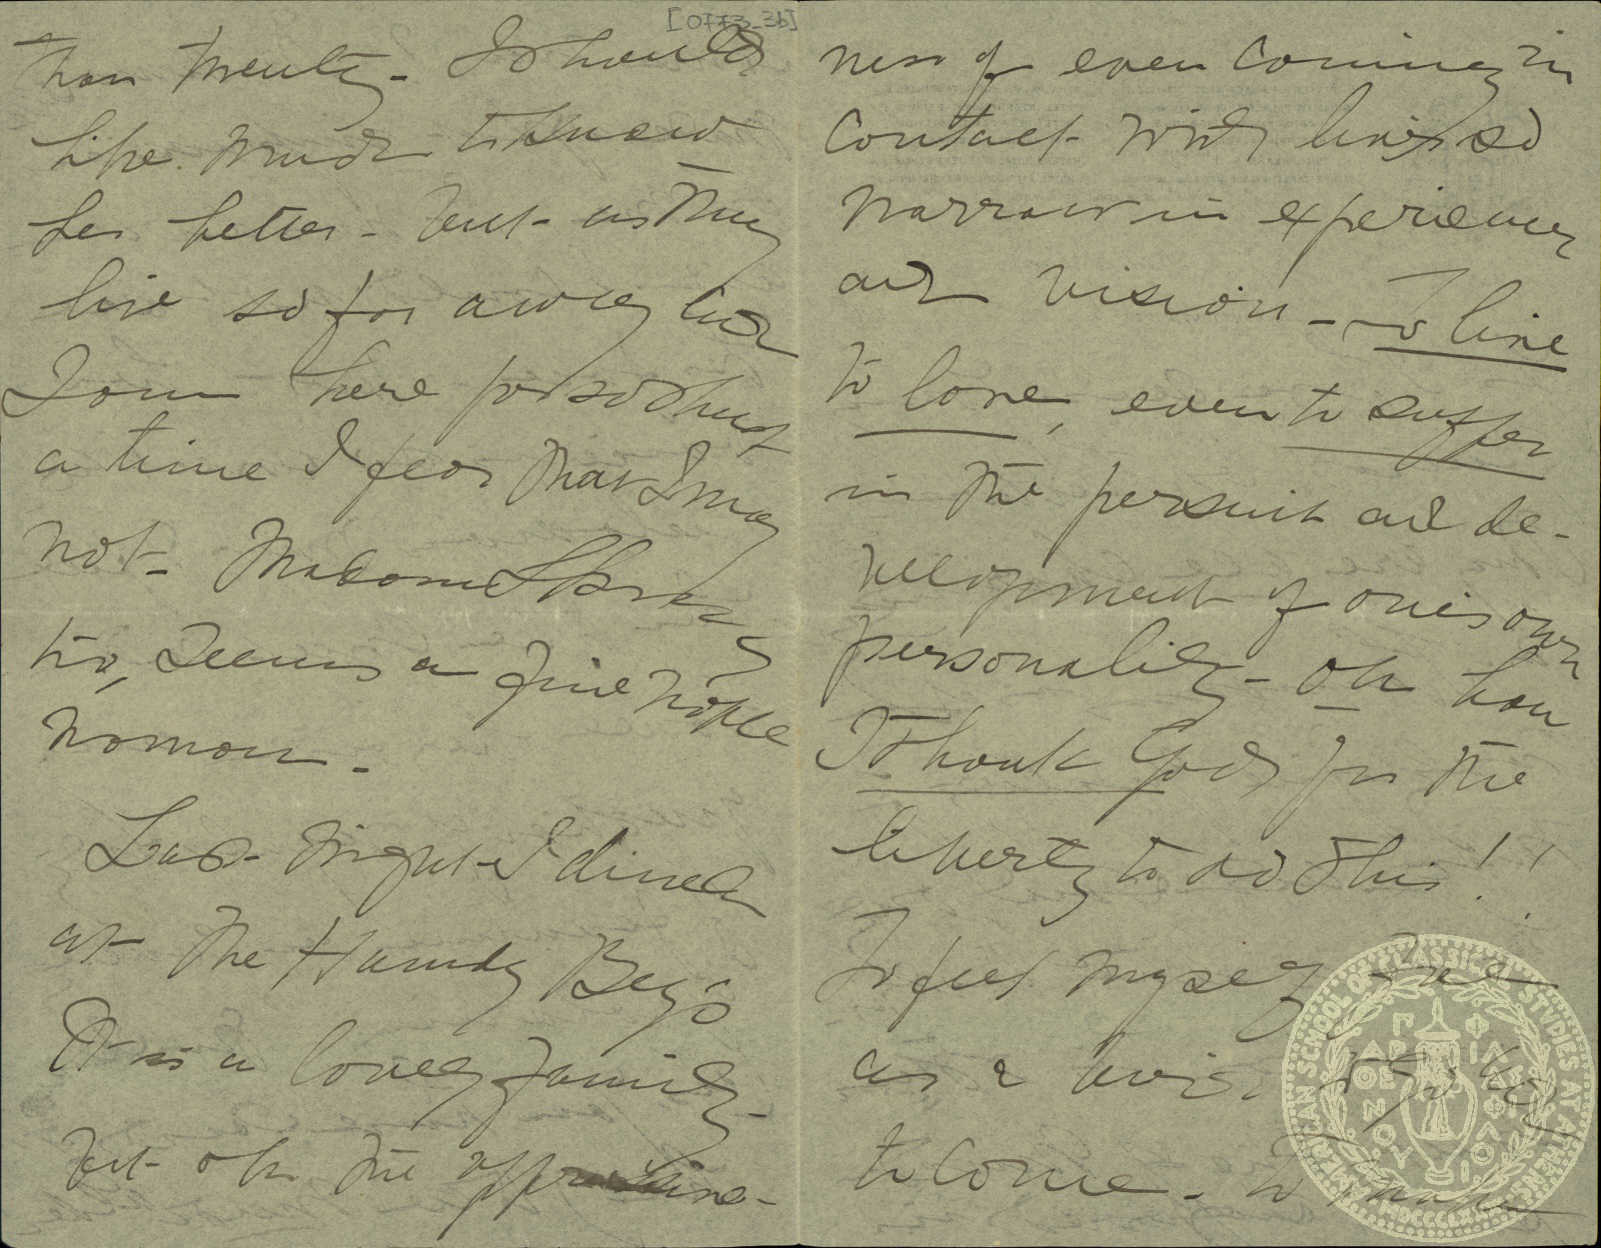 [0773_3b]
than twenty - I should
like much to know
her better - but as they
live so far away and
I am here for so short
a time I fear that I may
not - Madame
seems a fine noble
woman -
Last night I dined
at the Hamdy Bey's
It is a lovely family -
but oh the oppressive-
ness of even coming in
contact with lives so
narrow in experience
and vision - To live
to love, even to suffer
in the persuit and de-
velopment of one's own
personality - oh how
I thank God for the
liberty to do this!!
To feel myself free
as a
to come - to
AMERICAN SCHOOL OF CLASSICAL STUDIES AT ATHENS
MDCCCLXXXI
ΠΑΡΘΕΝΟΥ ΦΙΛΑΣ ΦΙΛΟΙ